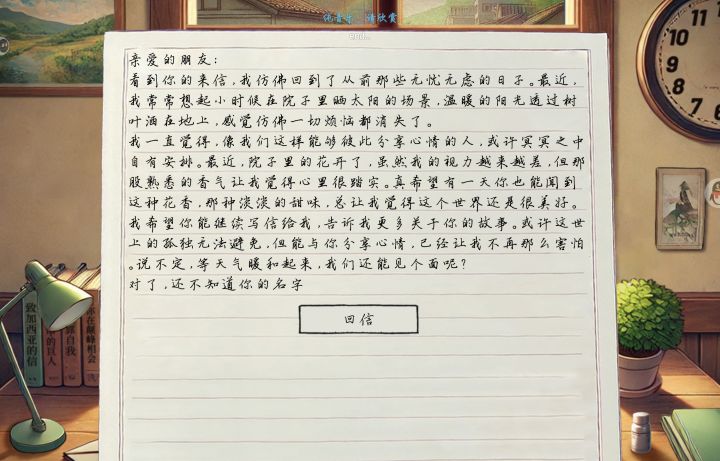 纯音乐，请欣赏
end..
亲爱的朋友：
看到你的来信，我仿佛回到了从前那些无忧无虑的日子。最近，
我常常想起小时候在院子里晒太阳的场景，温暖的阳光透过树
叶洒在地上，感觉仿佛一切烦恼都消失了。
我一直觉得，像我们这样能够彼此分享心情的人，或许冥冥之中
自有安排。最近，院子里的花开了，虽然我的视力越来越差，但那
股熟悉的香气让我觉得心里很踏实。真希望有一天你也能闻到
这种花香，那种淡淡的甜味，总让我觉得这个世界还是很美好。
我希望你能继续写信给我，告诉我更多关于你的故事。或许这世
上的孤独无法避免，但能与你分享心情，已经让我不再那么害怕
。说不定，等天气暖和起来，我们还能见个面呢？
对了，还不知道你的名字
回信
致加西亚的信
的巨人
自我
在巅峰相会
12
11
10
9
8
7
6
5